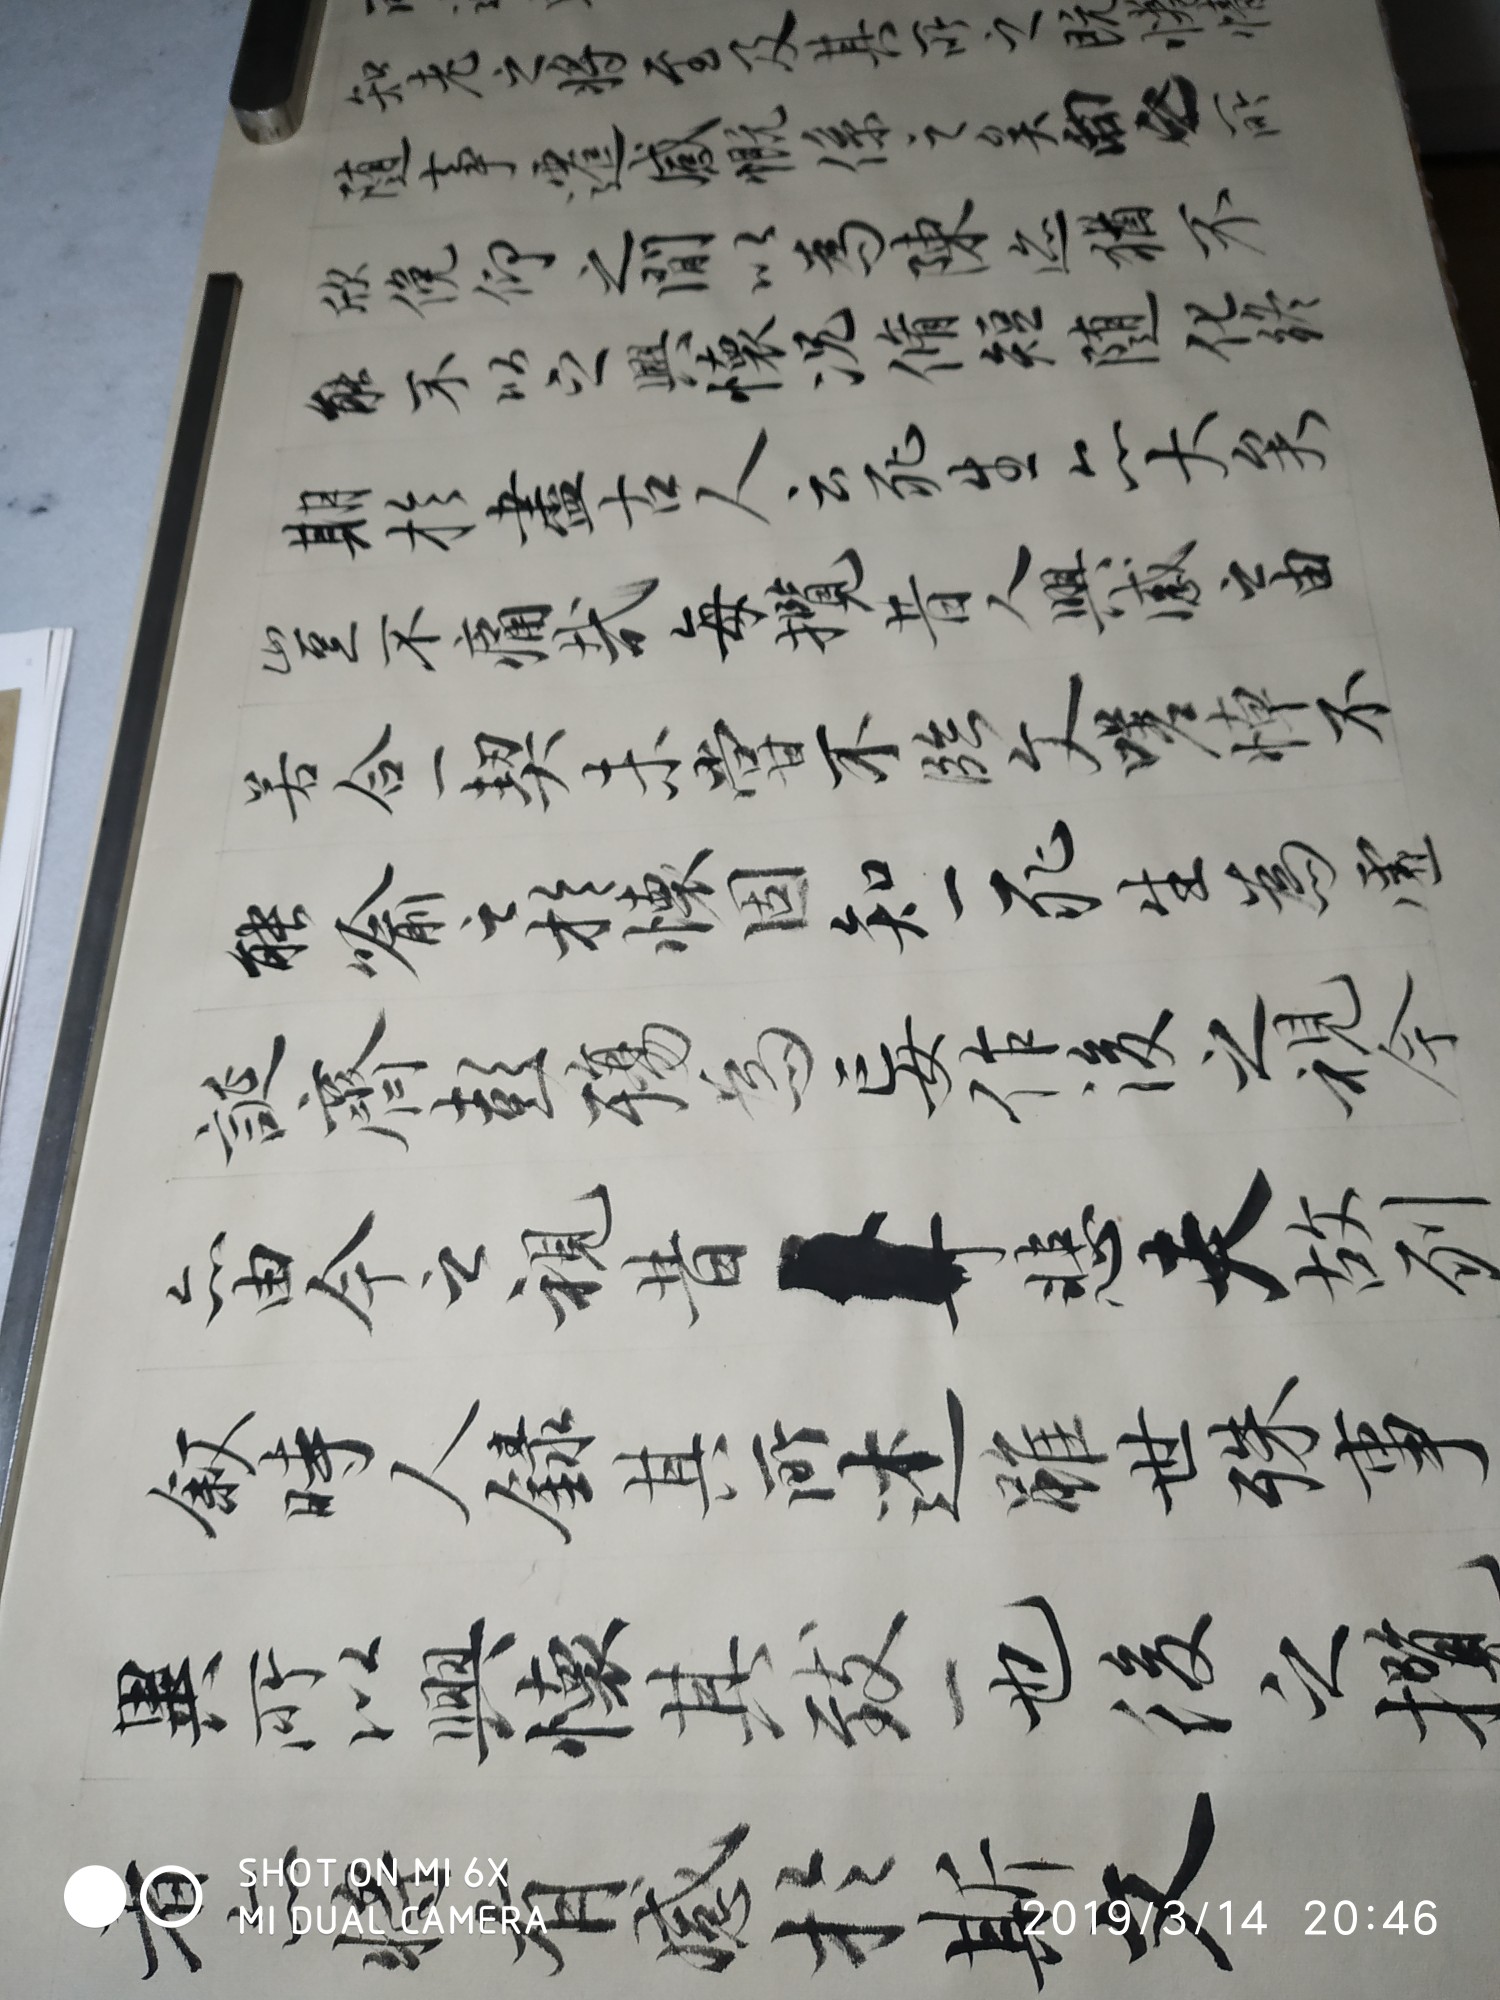 知老之將至及其所之既惓情
隨事遷感慨係之矣向之所
欣俛仰之閒以為陳迹猶不
能不以之興懷況脩短隨化終
期於盡古人云死生亦大矣
豈不痛哉每攬昔人興感之由
若合一契未嘗不臨文嗟悼不
能喻之於懷固知一死生為虛
誕齊彭殤為妄作後之視今
亦由今之視昔悲夫故列
敘時人錄其所述雖世殊事
異所以興懷其致一也後之攬
者亦將有感於斯文
SHOT ON MI 6X
MI DUAL CAMERA
2019/3/14 20:46